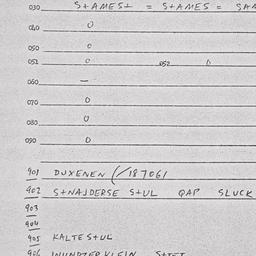 030 S+AMES+ = S+AMES = SAM
040 0
050 0
051 0 052 0
060 —
070 0
080 0
090 0
901 DUXENEN (/187061
902 S+NAJDERSE S+UL QAP SLUCK
903
904
905 KALTE S+UL
906 KLEIN